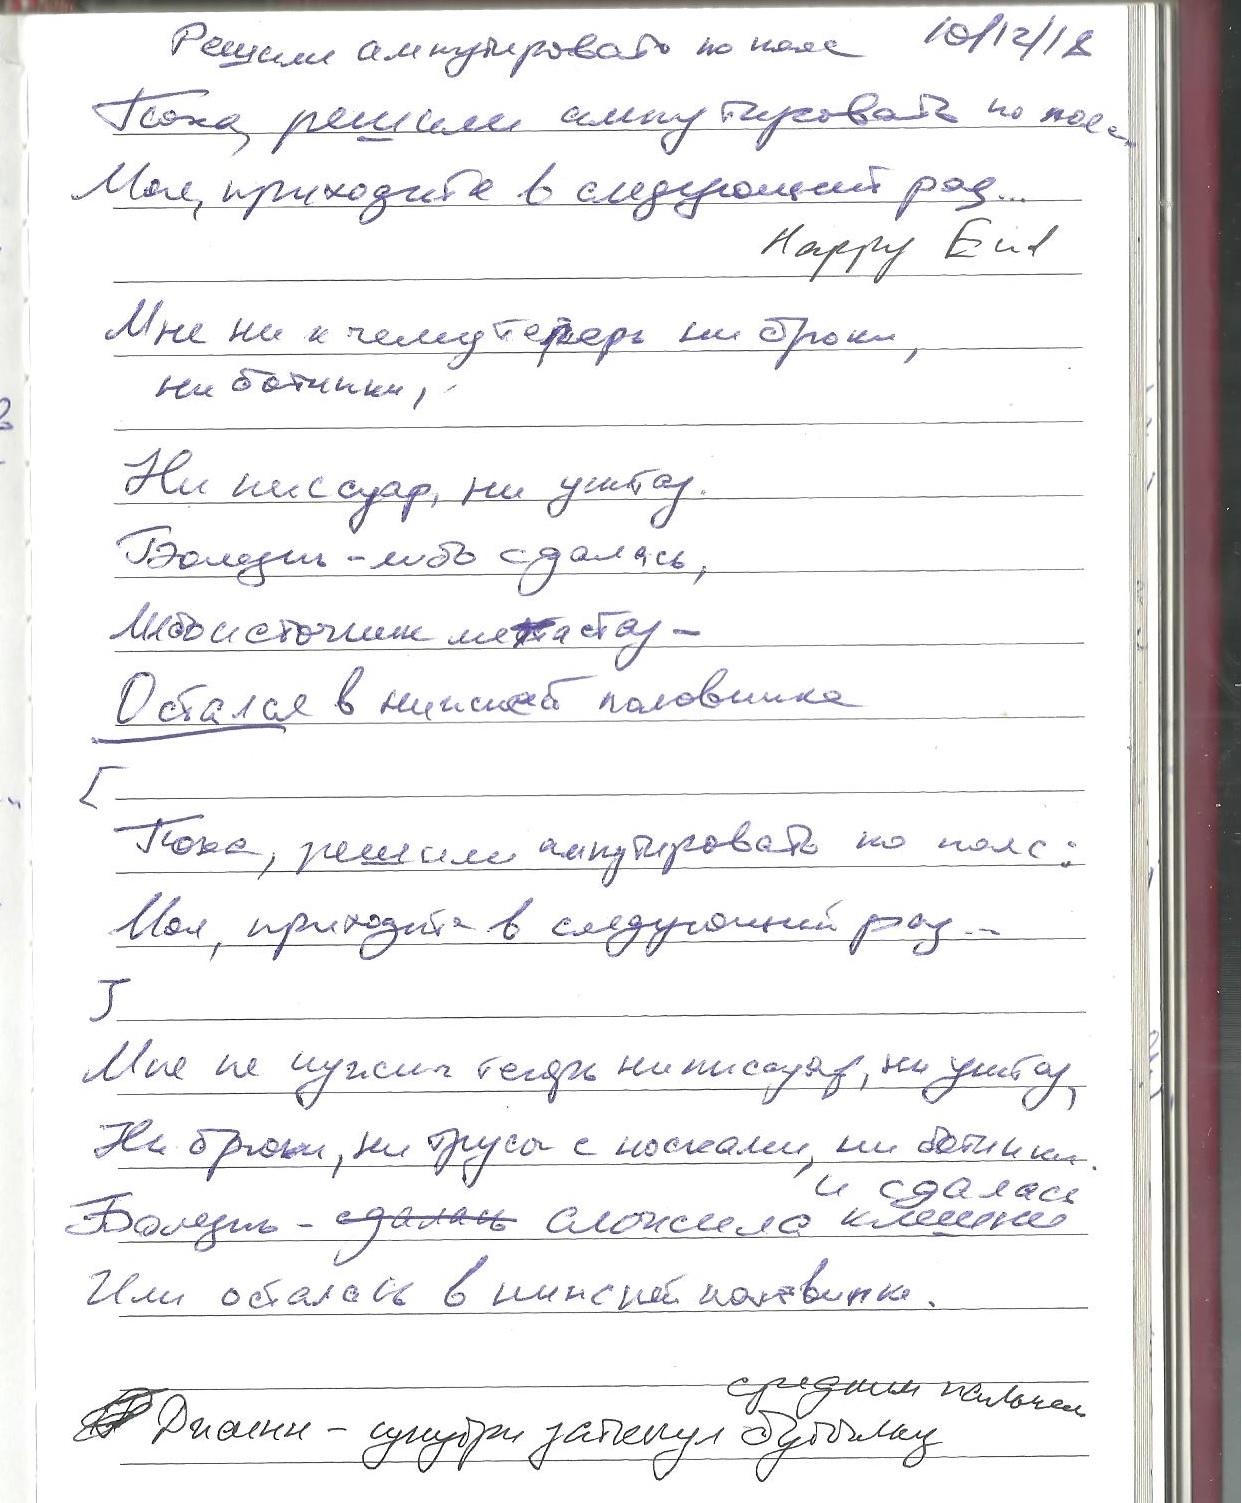 Решили ампутировать по пояс 10/12/18
Пока, решили ампутировать по пояс
Моя, приходите в следующий раз...
Happy End
Мне ни к чему теперь ни брюки,
ни ботинки,
Ни писсуар, ни унитаз.
Болезнь - либо сдалась,
Либо источник метастаз -
Остался в нижней половинке
[
Пока, решили ампутировать по пояс:
Моя, приходите в следующий раз...
]
Мне не нужны теперь ни писсуар, ни унитаз,
Ни брюки, ни трусы с носками, ни ботинки.
и сдалась
Болезнь - сдалась сложила клешни
Или осталась в нижней половинке.
средним пальцем
- изнутри заткнул бутылку